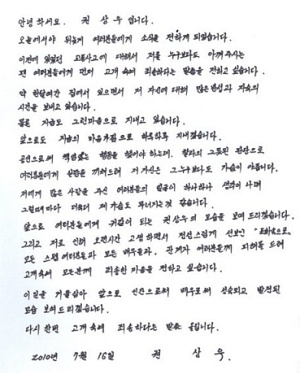 안녕하세요. 권상우 입니다.
오늘에서야 뒤늦게 여러분들에게 소식을 전하게 되었습니다.
이번에 있었던 교통사고에 대해서 저를 누구보다도 아껴주시는
팬 여러분들에게 먼저 고개 숙여 죄송하다는 말씀을 전하고 싶습니다.
약 한달여간 집에서 있으면서 저 자신에 대해 많은 반성과 자숙의
시간을 보내고 있습니다.
물론 지금도 그런 마음으로 지내고 있습니다.
앞으로도 자숙의 마음가짐으로 하루하루 지내겠습니다.
공인으로써 책임있는 행동을 했어야 하는데, 찰나의 그릇된 판단으로
여러분들에게 실망을 끼쳐드려 저 자신은 그누구보다도 가슴이 아픕니다.
저에게 많은 사랑을 주신 여러분들의 얼굴이 하나하나 생각이 나며
그럴때마다 더욱더 제 가슴도 무너지는것 같습니다.
앞으로 여러분들에게 귀감이 되는 권상우의 모습을 보여 드리겠습니다.
그리고 저로 인해 오랜시간 고생하면서 정성스럽게 선보인
모든 스텝 여러분들과 모든 배우들과, 관계자 여러분들께 피해를 드려
고개숙여 모든분께 죄송한 마음을 전하고 싶습니다.
이 일을 거울삼아 앞으로 인간으로써 배우로써 성숙되고 발전된
모습 보여드리겠습니다.
다시 한번 고개 숙여 죄송하다는 말씀 올립니다.
2010년 7월 16일 권 상 우.